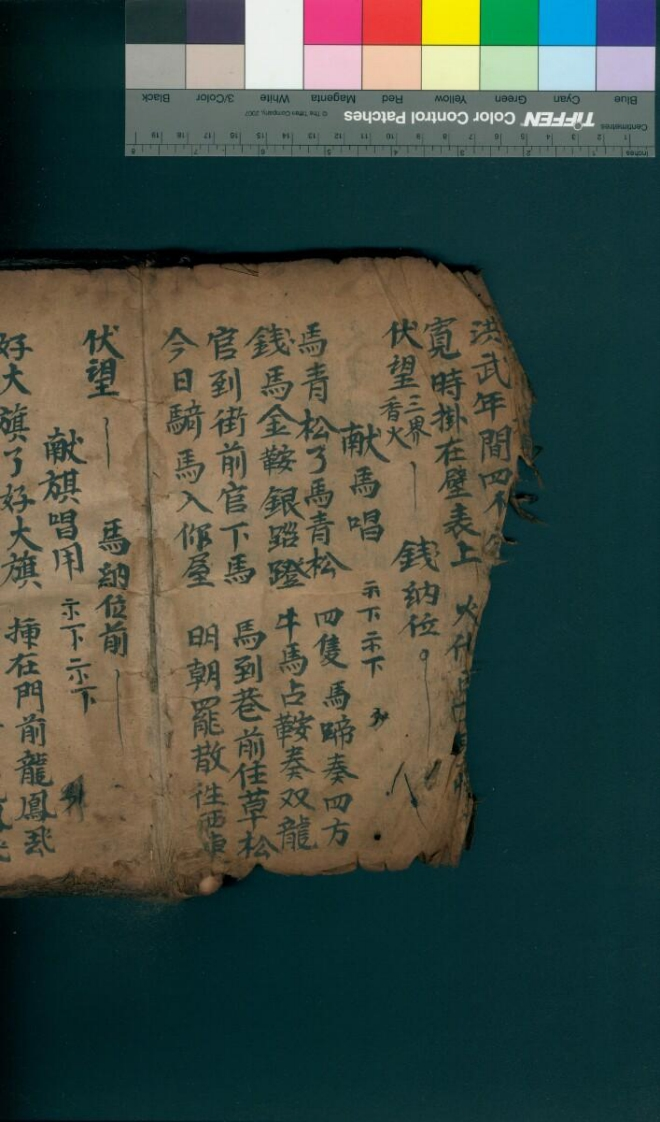 洪武年間四
寬時掛在壁表上 火
伏望 三界香火 錢納位
献馬唱 示下示下
馬青松了馬青松 四隻馬蹄奏四方
錢馬金鞍銀路蹬 牛馬占鞍奏双龍
官到街前官下馬 馬到巷前住草松
今日騎馬入伱屋 明朝罷散往西
伏望 馬納位前
献旗唱用 示下示下
好大旗了好大旗 揷在門前龍鳳
Black 3/Color White Magenta Red Yellow Green Cyan Blue
© The Tiffen Company, 2007 TIFFEN Color Control Patches
Centimetres
Inches